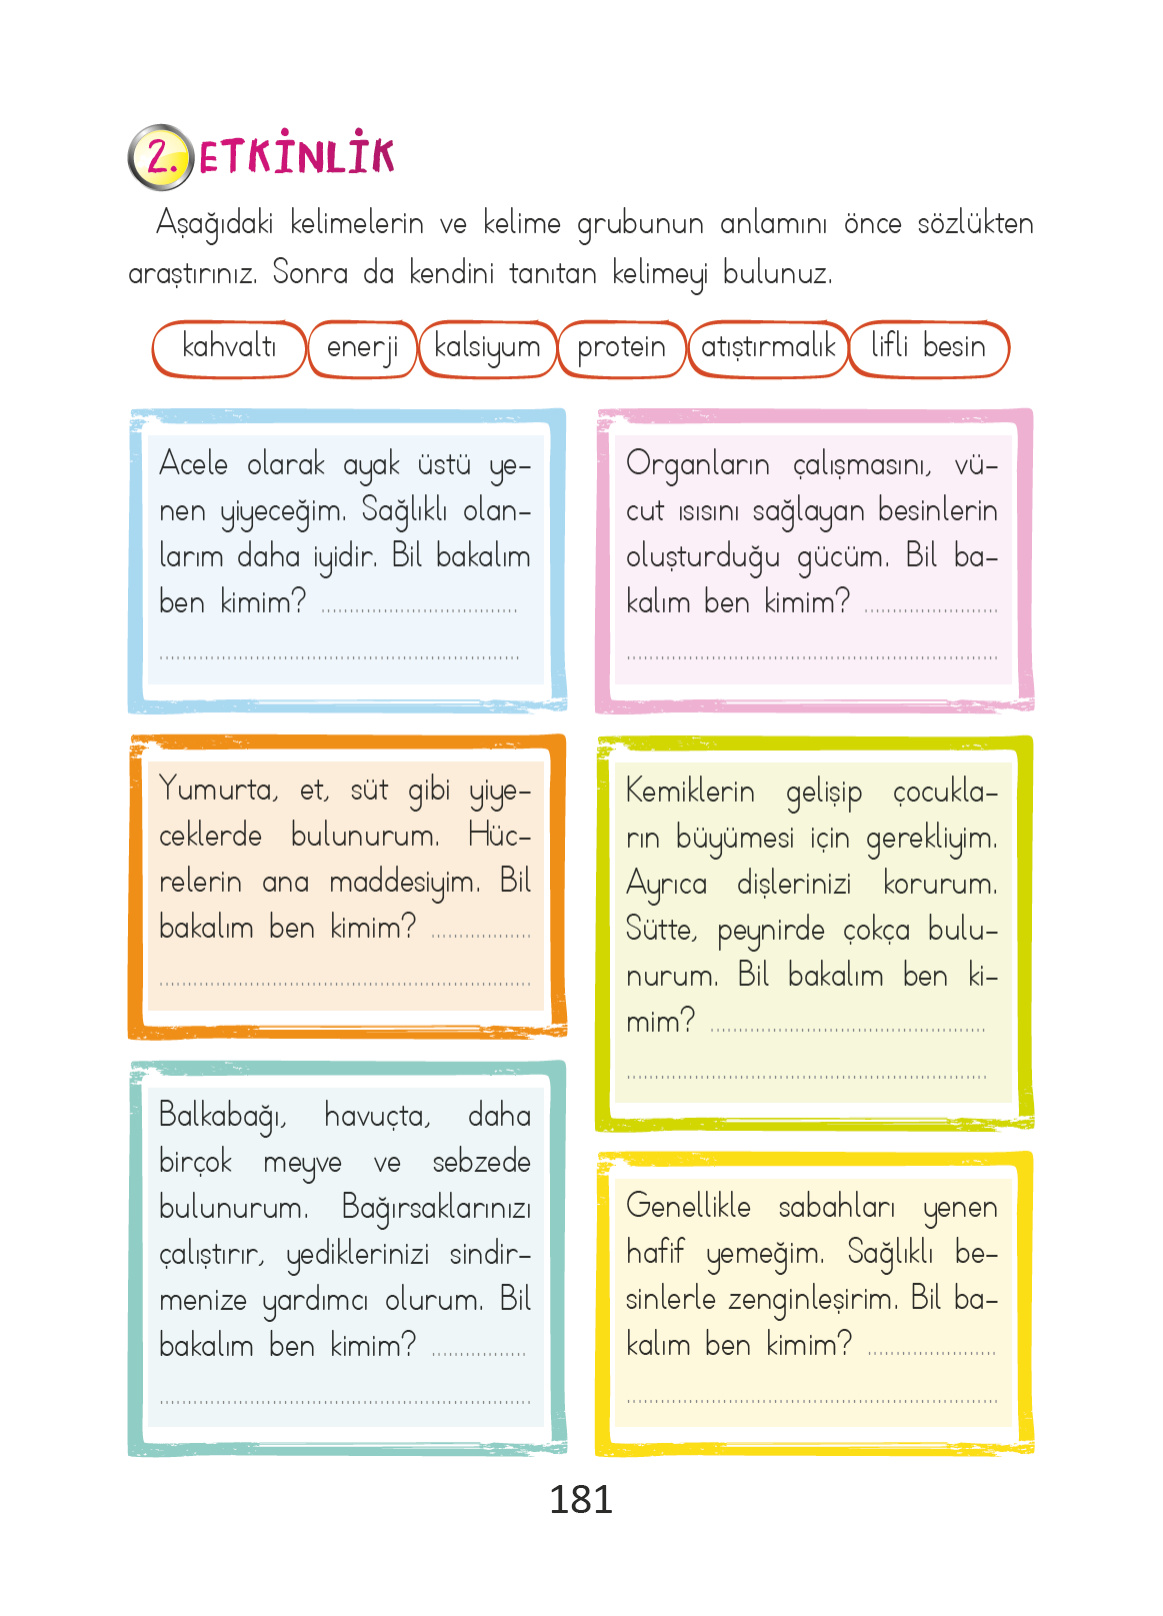 2. ETKİNLİK
Aşağıdaki kelimelerin ve kelime grubunun anlamını önce sözlükten
araştırınız. Sonra da kendini tanıtan kelimeyi bulunuz.
kahvaltı enerji kalsiyum protein atıştırmalık lifli besin
Acele olarak ayak üstü ye-
nen yiyeceğim. Sağlıklı olan-
larım daha iyidir. Bil bakalım
ben kimim? ...................................
................................................................
Organların çalışmasını, vü-
cut ısısını sağlayan besinlerin
oluşturduğu gücüm. Bil ba-
kalım ben kimim? ........................
..................................................................
Yumurta, et, süt gibi yiye-
ceklerde bulunurum. Hüc-
relerin ana maddesiyim. Bil
bakalım ben kimim? ..................
..................................................................
Kemiklerin gelişip çocukla-
rın büyümesi için gerekliyim.
Ayrıca dişlerinizi korurum.
Sütte, peynirde çokça bulu-
nurum. Bil bakalım ben ki-
mim? .................................................
................................................................
Balkabağı, havuçta, daha
birçok meyve ve sebzede
bulunurum. Bağırsaklarınızı
çalıştırır, yediklerinizi sindir-
menize yardımcı olurum. Bil
bakalım ben kimim? .................
..................................................................
Genellikle sabahları yenen
hafif yemeğim. Sağlıklı be-
sinlerle zenginleşirim. Bil ba-
kalım ben kimim? .......................
..................................................................
181